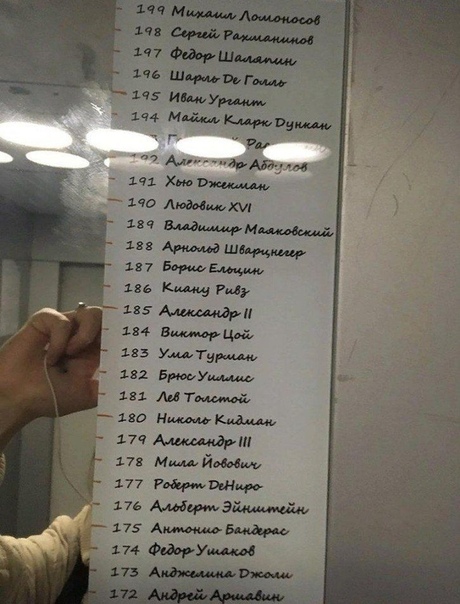 199 Михаил Ломоносов
198 Сергей Рахманинов
197 Федор Шаляпин
196 Шарль Де Голль
195 Иван Ургант
194 Майкл Кларк Дункан
192 Александр Абдулов
191 Хью Джекман
190 Людовик XVI
189 Владимир Маяковский
188 Арнольд Шварцнегер
187 Борис Ельцин
186 Киану Ривз
185 Александр II
184 Виктор Цой
183 Ума Турман
182 Брюс Уиллис
181 Лев Толстой
180 Николь Кидман
179 Александр III
178 Мила Йовович
177 Роберт ДеНиро
176 Альберт Эйнштейн
175 Антонио Бандерас
174 Федор Ушаков
173 Анджелина Джоли
172 Андрей Аршавин